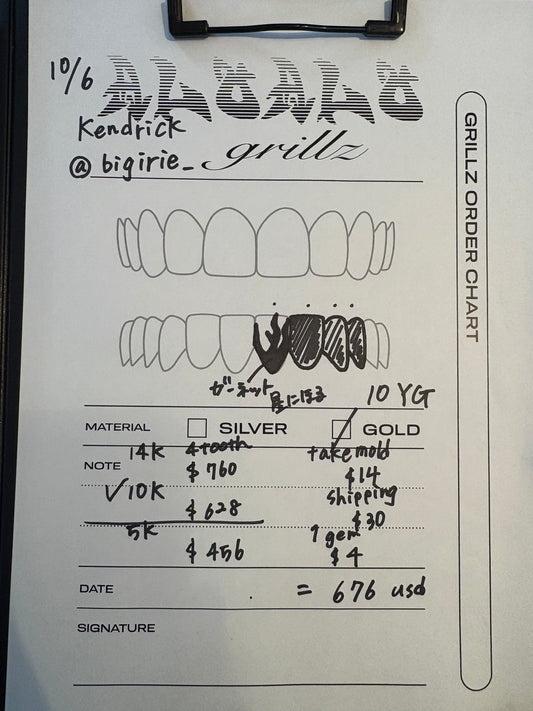 10/6
Kendrick
@ bigirie_
grillz
GRILLZ ORDER CHART
ガーネット
星にほる
10 YG
MATERIAL SILVER GOLD
14k 4 tooth take mold
NOTE $760 $14
✓10k shipping
$628 $30
5k 1 gem
$456 $4
DATE = 676 usd
SIGNATURE